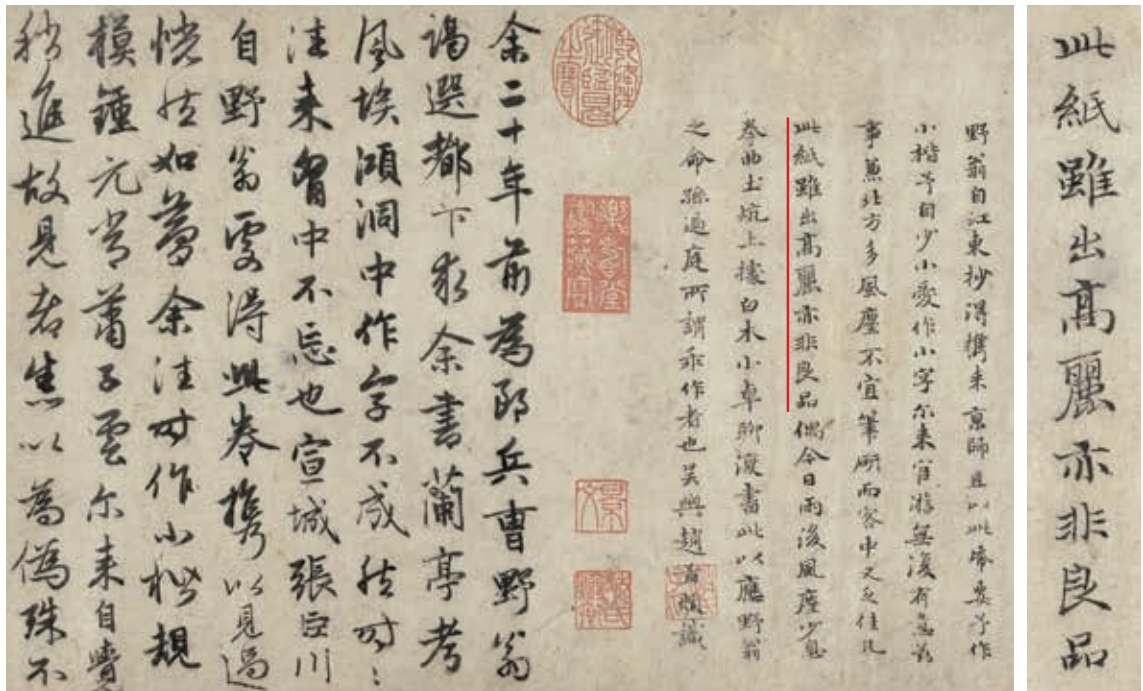 野翁自江東抄得攜来京師且以此帋要予作
小楷予自少小愛作小字尔来宦游無復有意茲
事兼北方多風塵不宜筆研而客中又乏佳几
此紙雖出高麗亦非良品偶今日雨後風塵少息
拳曲土炕上據白木小卓聊復書此以應野翁
之命孫過庭所謂乖作者也吴興趙孟頫識
余二十年前為郎兵曹野翁
謁選都下求余書蘭亭考
風埃澒洞中作字不成然時〻
往来胷中不忘也宣城張臣川
自野翁處得此卷攜以見過
恍然如夢余往時作小楷規
模鍾元常蕭子雲尔来自覺
稍進故見者悉以為偽殊不
此紙雖出高麗亦非良品